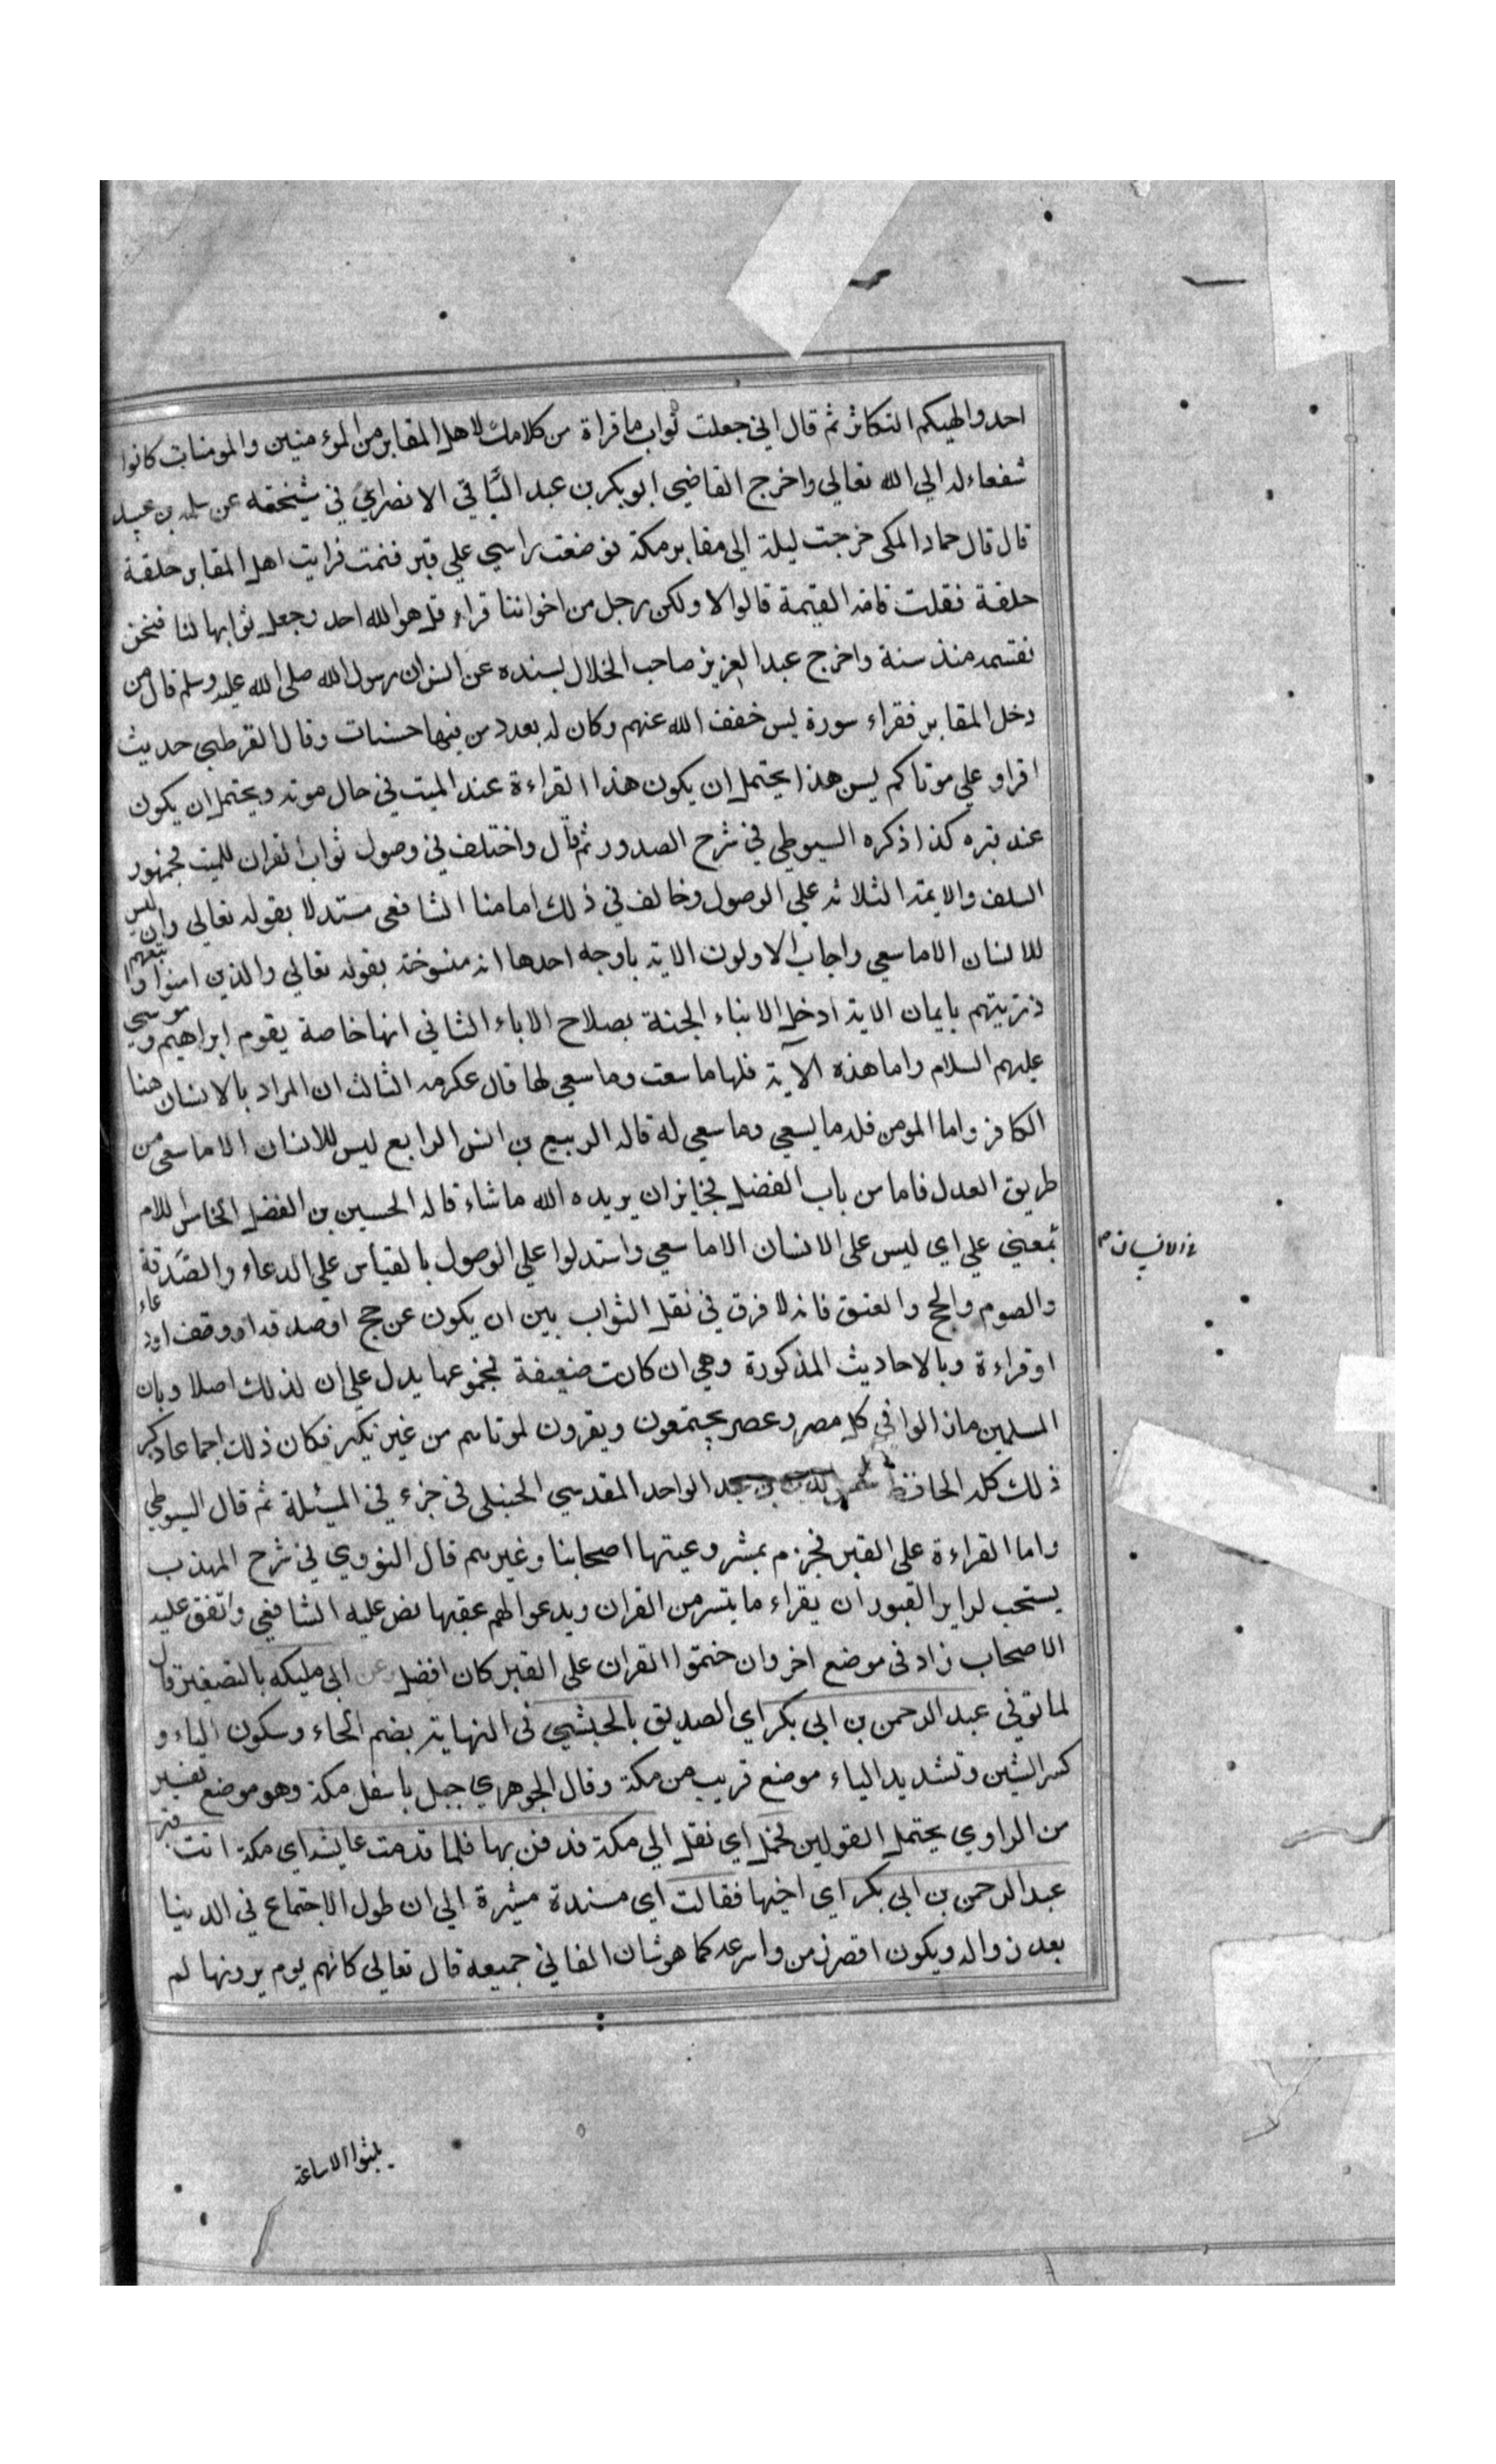 احد والهيكم التكاثر ثم قال اني جعلت ثواب ما قراة من كلامك لاهل المقابر من المؤمنين والمومنات كانوا
شفعاء له الي الله تعالي واخرج القاضي ابو بكر بن عبد الباقي الانصاري في شيخته عن سلمه بن عبيد
قال قال حماد المكي خرجت ليلة الي مقابر مكة فوضعت راسي علي قبر فنمت فرايت اهل المقابر حلقة
حلقة فقلت قامة القيمة قالوا لا ولكن رجل من اخواننا قراء قل هو الله احد وجعل ثوابها لنا فنحن
نقتسمه منذ سنة واخرج عبد العزيز صاحب الخلال بسنده عن انس ان رسول الله صلى الله عليه وسلم قال من
دخل المقابر فقراء سورة يس خفف الله عنهم وكان له بعدد من فيها حسنات وقال القرطبي حديث
اقراو علي موتاكم يس هذا يحتمل ان يكون هذا القراءة عند الميت في حال موته ويحتمل ان يكون
عند قبره كذا ذكره السيوطي في شرح الصدور ثم قال واختلف في وصول ثواب القران للميت فجمهور
السلف والايمة الثلاثه علي الوصول وخالف في ذلك امامنا الشافعي مستدلا بقوله تعالي وان ليس
للانسان الا ما سعي واجاب الاولون الاية باوجه احدها انه منسوخة بقوله تعالي والذين امنوا واتبعهم
ذريتهم بايمان الاية ادخل الابناء الجنة بصلاح الاباء الثاني انها خاصة بقوم ابراهيم وموسي
عليهم السلام واما هذه الآية فلها ما سعت وما سعي لها قال عكرمه الثالث ان المراد بالانسان هنا
الكافر واما المومن فله ما يسعي وما سعي له قاله الربيع بن انس الرابع ليس للانسان الا ما سعي من
طريق العدل فاما من باب الفضل فجايز ان يريده الله ما شاء قاله الحسين بن الفضل الخامس اللام
بمعني علي اي ليس علي الانسان الا ما سعي واستدلوا علي الوصول بالقياس علي الدعاء والصدقة
والصوم والحج والعتق فانه لا فرق في نقل الثواب بين ان يكون عن حج او صدقه او وقف او دعاء
او قراءة وبالاحاديث المذكورة وهي ان كانت ضعيفة فمجموعها يدل علي ان لذلك اصلا وبان
المسلمين مازالوا في كل مصر وعصر يجتمعون ويقرون لموتاهم من غير نكير فكان ذلك اجماعا ذكر
ذلك كله الحافظ بن عبد الواحد المقدسي الحنبلي في جزء في المسئلة ثم قال السيوطي
واما القراءة علي القبر فجزم بمشروعيتها اصحابنا وغيرهم قال النووي في شرح المهذب
يستحب لزاير القبور ان يقراء ما يتسر من القران ويدعوا لهم عقبها نص عليه الشافعي واتفق عليه
الاصحاب زاد في موضع اخر وان ختموا القران علي القبر كان افضل وعن ابي مليكه بالتصغير قال
لما توفي عبد الرحمن بن ابي بكر اي الصديق بالحبشي في النهاية بضم الحاء وسكون الباء و
كسر الشين وتشديد الياء موضع قريب من مكة وقال الجوهري جبل باسفل مكة وهو موضع تفسير
من الراوي يحتمل القولين فحمل اي نقل الي مكة فدفن بها فلما قدمت عايشه اي مكة اتت قبر
عبد الرحمن بن ابي بكر اي اخيها فقالت اي مسندة مشيرة الي ان طول الاجتماع في الدنيا
بعد زواله ويكون اقصر زمن واسرعه كما هو شان الفاني جميعه قال تعالي كانهم يوم يرونها لم
يلبثوا الا ساعة